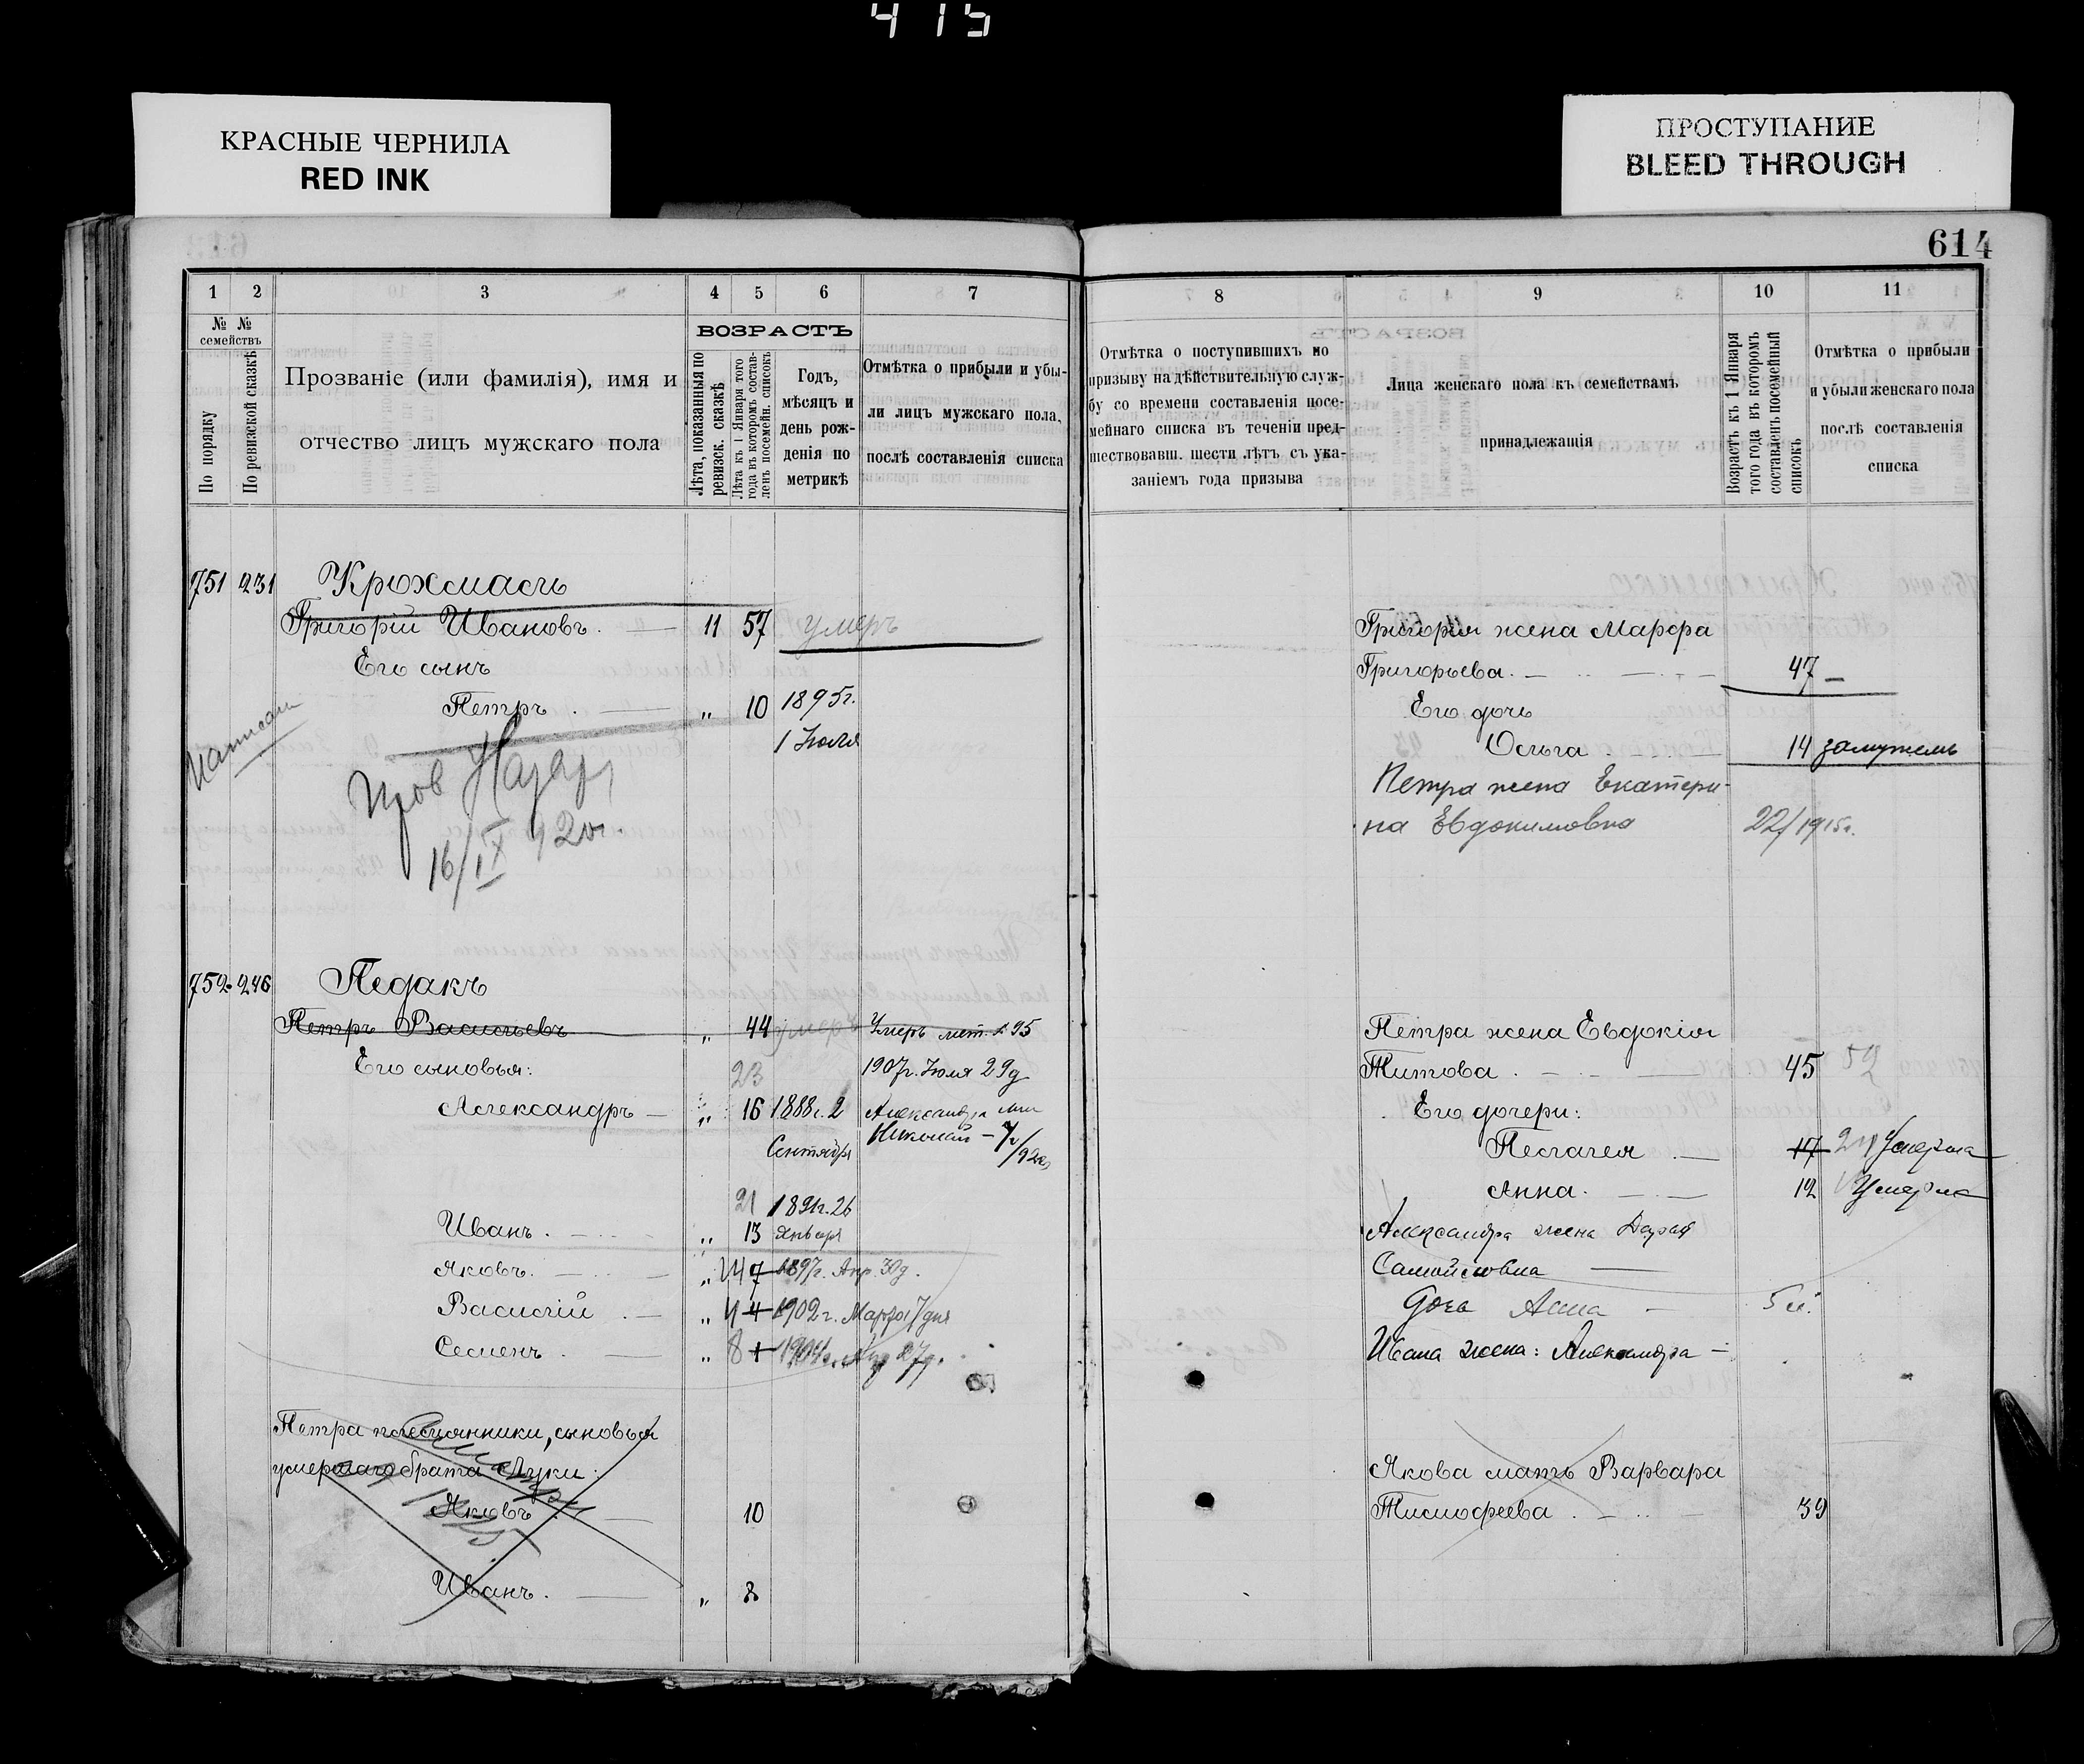 415
КРАСНЫЕ ЧЕРНИЛА
RED INK
ПРОСТУПАНИЕ
BLEED THROUGH
614
1 2 3 4 5 6 7
№ № семействъ
По порядку
По ревизской сказкѣ
Прозваніе (или фамилія), имя и
отчество лицъ мужскаго пола
ВОЗРАСТЪ
Лѣта, показанныя по
ревизск. сказкѣ
Лѣта къ 1 Января того
года въ которомъ состав-
ленъ посемейн. списокъ
Годъ,
мѣсяцъ и
день рож-
денія по
метрикѣ
Отмѣтка о прибыли и убы-
ли лицъ мужскаго пола,
послѣ составленія списка
751 231 Крохмаль
Григорій Ивановъ. 11 57 умеръ
Его сынъ
Петръ. " 10 1895г.
1 Іюля
Написан
16/IX 920г.
752 246 Педакъ
Петръ Васильевъ " 44 умеръ Умеръ мет. № 95
Его сыновья: 23 1907г. Іюля 29д
Александръ " 16 1888г. 2 Александра
Сентября Николай
21 1891г. 26
Иванъ. " 13 Января
Яковъ. " 14 7 1897г. Апр. 30д.
Василій " 4 1902г. Марта 7 дня
Семенъ " 8 1 1904г. Апр 27д.
Петра племянники, сыновья
умершаго брата Луки:
Яковъ 10
Иванъ. " 8
8 9 10 11
Отмѣтка о поступившихъ по
призыву на дѣйствительную служ-
бу со времени составленія посе-
мейнаго списка въ теченіи пред-
шествовавш. шести лѣтъ съ ука-
заніемъ года призыва
Лица женскаго пола къ семействамъ
принадлежащія
Возрастъ къ 1 Января
того года въ которомъ
составленъ посемейный
списокъ
Отмѣтка о прибыли
и убыли женскаго пола
послѣ составленія
списка
Григорія жена Марфа
Григорьева. 47
Его дочь
Ольга 14 замужемъ
Петра жена Екатери-
на Евдокимовна 22/1915г.
Петра жена Евдокія
Титова. 45 52
Его дочери:
Пелагея 17 Умерла
Анна. 12 Умерла
Александра жена Дарья
Самойловна
Дочь Анна 5 м.
Ивана жена: Александра
Якова мать Варвара
Тимофеева. 39